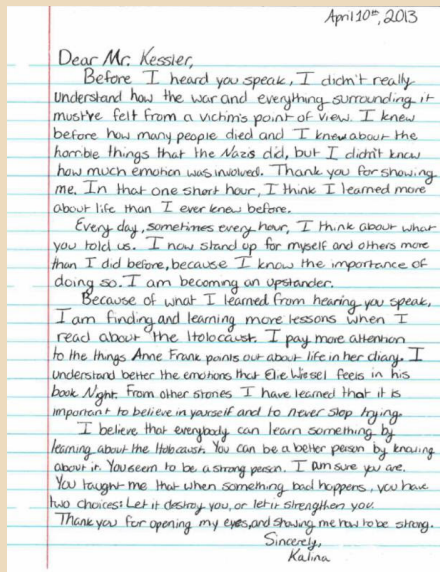 April 10th, 2013
Dear Mr. Kessler,
Before I heard you speak, I didn't really
understand how the war and everything surrounding it
must've felt from a victim's point of view. I knew
before how many people died and I knew about the
horrible things that the Nazis did, but I didn't know
how much emotion was involved. Thank you for showing
me. In that one short hour, I think I learned more
about life than I ever knew before.
Every day, sometimes every hour, I think about what
you told us. I now stand up for myself and others more
than I did before, because I know the importance of
doing so. I am becoming an upstander.
Because of what I learned from hearing you speak,
I am finding and learning more lessons when I
read about the Holocaust. I pay more attention
to the things Anne Frank points out about life in her diary. I
understand better the emotions that Elie Wiesel feels in his
book Night. From other stories I have learned that it is
important to believe in yourself and to never stop trying.
I believe that everybody can learn something by
learning about the Holocaust. You can be a better person by knowing
about it. You seem to be a strong person. I am sure you are.
You taught me that when something bad happens, you have
two choices: Let it destroy you, or let it strengthen you.
Thank you for opening my eyes, and showing me how to be strong.
Sincerely,
Kalina